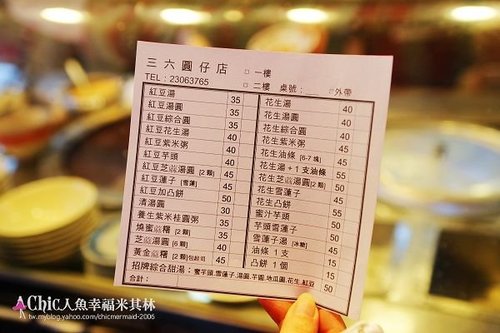 三六圓仔店 □一樓
TEL：23063765 □二樓 桌號： □外帶
紅豆湯 35 花生湯 40
紅豆湯圓 35 花生湯圓 40
紅豆綜合圓 35 花生綜合圓 40
紅豆花生湯 40 花生紫米粥 40
紅豆紫米粥 35 花生油條 [6-7塊] 45
紅豆芋頭 40 花生湯+1支油條 55
紅豆芝蔴湯圓 [2顆] 45 花生芝蔴湯圓 [2顆] 50
紅豆蓮子 [雪蓮] 45 花生雪蓮子 50
紅豆加凸餅 50 蜜汁芋頭 55
清湯圓 30 芋頭雪蓮子 50
養生紫米桂圓粥 35 雪蓮子湯 [冰糖] 45
燒蜜蔴糬 [2顆] 40 油條1支 15
芝蔴湯圓 [6顆] 50 凸餅1個 15
黃金蔴糬 [2顆]包起司 45
招牌綜合甜湯：蜜芋頭,雪蓮子,湯圓,芋圓,地瓜圓,花生,紅豆 50
合計：
Chic人魚幸福米其林
tw.myblog.yahoo.com/chicmermaid-2006